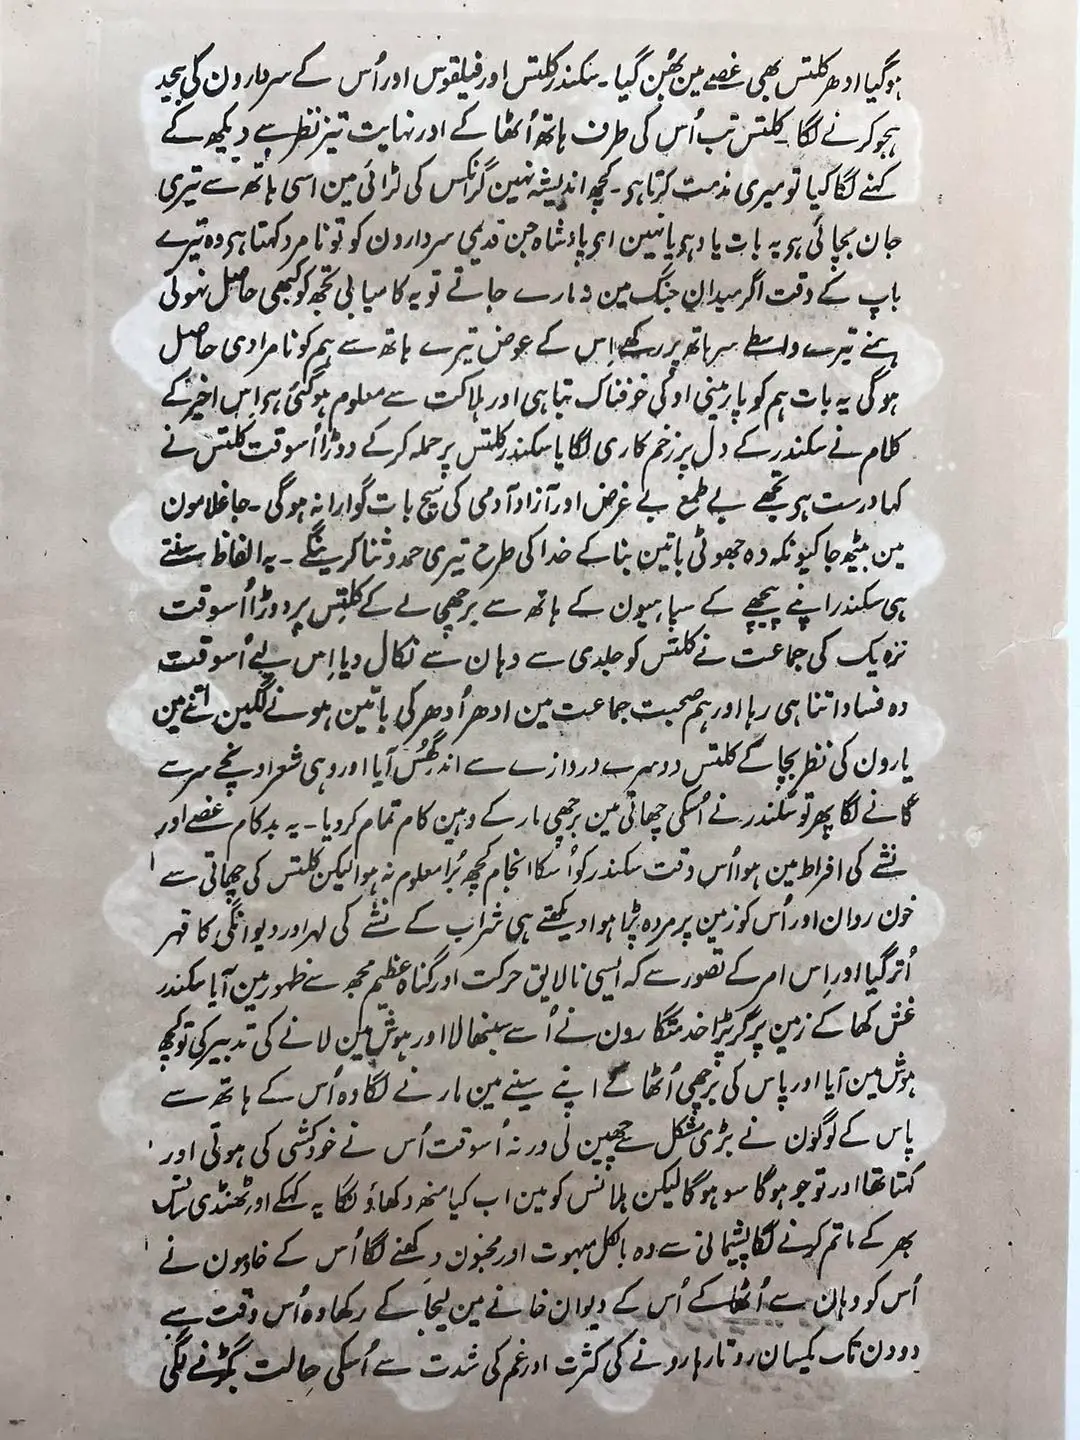 ہوگیا ادھر کلتس بھی غصے مین بھُن گیا۔ سکندر کلتس اور فیلقوس اور اُس کے سردارون کی بیحد
ہجو کرنے لگا۔ کلتس تب اُس کی طرف ہاتھ اُٹھا کے اور نہایت تیز نظر سے دیکھ کے
کہنے لگا کیا تو میری مذمت کرتا ہی۔ کچھ اندیشہ نہین گرانکس کی لڑائی مین اسی ہاتھ سے تیری
جان بچائی ہی یہ بات یاد ہی یا نہین ای پادشاہ جن قدیمی سردارون کو تو نامرد کہتا ہی وہ تیرے
باپ کے وقت اگر میدان جنگ مین نہ مارے جاتے تو یہ کامیابی تجھ کو کبھی حاصل نہوتی
ہمنے تیرے واسطے سر ہاتھ پر رکھے اِس کے عوض تیرے ہاتھ سے ہم کو نامرادی حاصل
ہوگی یہ بات ہم کو پارمینی او کی خوفناک تباہی اور ہلاکت سے معلوم ہوگئی ہی اِس اخیر کے
کلام نے سکندر کے دل پر زخم کاری لگایا سکندر کلتس پر حملہ کرکے دوڑا اُسوقت کلتس نے
کہا درست ہی تجھے بے طمع بے غرض اور آزاد آدمی کی سچ بات گوارا نہ ہوگی۔ جا غلامون
مین بیٹھ جا کیونکہ وہ جھوٹی باتین بنا کے خدا کی طرح تیری حمد و ثنا کرینگے۔ یہ الفاظ سنتے
ہی سکندر اپنے پیچھے کے سپاہیون کے ہاتھ سے برچھی لے کے کلتس پر دوڑا اُسوقت
نزدیک کی جماعت نے کلتس کو جلدی سے وہان سے نکال دیا اِس لیے اُسوقت
وہ فساد اتنا ہی رہا اور ہم صحبت جماعت مین ادھر اُدھر کی باتین ہونے لگین اتنے مین
یارون کی نظر بچا کے کلتس دوسرے دروازے سے اندر گھُس آیا اور وہی شعر اونچے سر سے
گانے لگا پھر تو سکندر نے اُسکی چھاتی مین برچھی مار کے وہین کام تمام کردیا۔ یہ بد کام غصے اور
نشے کی افراط مین ہوا اُس وقت سکندر کو اُسکا انجام کچھ بُرا معلوم نہ ہوا لیکن کلتس کی چھاتی سے
خون روان اور اُس کو زمین پر مردہ پڑا ہوا دیکھتے ہی شراب کے نشے کی لہر اور دیوانگی کا قہر
اُتر گیا اور اِس امر کے تصور سے کہ ایسی نالایق حرکت اور گناہ عظیم مجھ سے ظہور مین آیا سکندر
غش کھا کے زمین پر گر پڑا خدمتگارون نے اُسے سنبھالا اور ہوش مین لانے کی تدبیر کی تو کچھ
ہوش مین آیا اور پاس کی برچھی اُٹھا کے اپنے سینے مین مارنے لگا وہ اُس کے ہاتھ سے
پاس کے لوگون نے بڑی مشکل سے چھین لی ورنہ اُسوقت اُس نے خودکشی کی ہوتی اور
کہتا تھا اور تو جو ہوگا سو ہوگا لیکن ہلانس کو مین اب کیا منھ دکھاؤ لگا یہ کہکے اور ٹھنڈی سانس
بھر کے ماتم کرنے لگا پشیمانی سے وہ بالکل مبہوت اور مجنون دکھنے لگا اُس کے خادمون نے
اُس کو وہان سے اُٹھا کے اُس کے دیوان خانے مین لیجا کے رکھا وہ اُس وقت سے
دو دن تک یکسان روتا رہا رونے کی کثرت اور غم کی شدت سے اُسکی حالت بگڑنے لگی